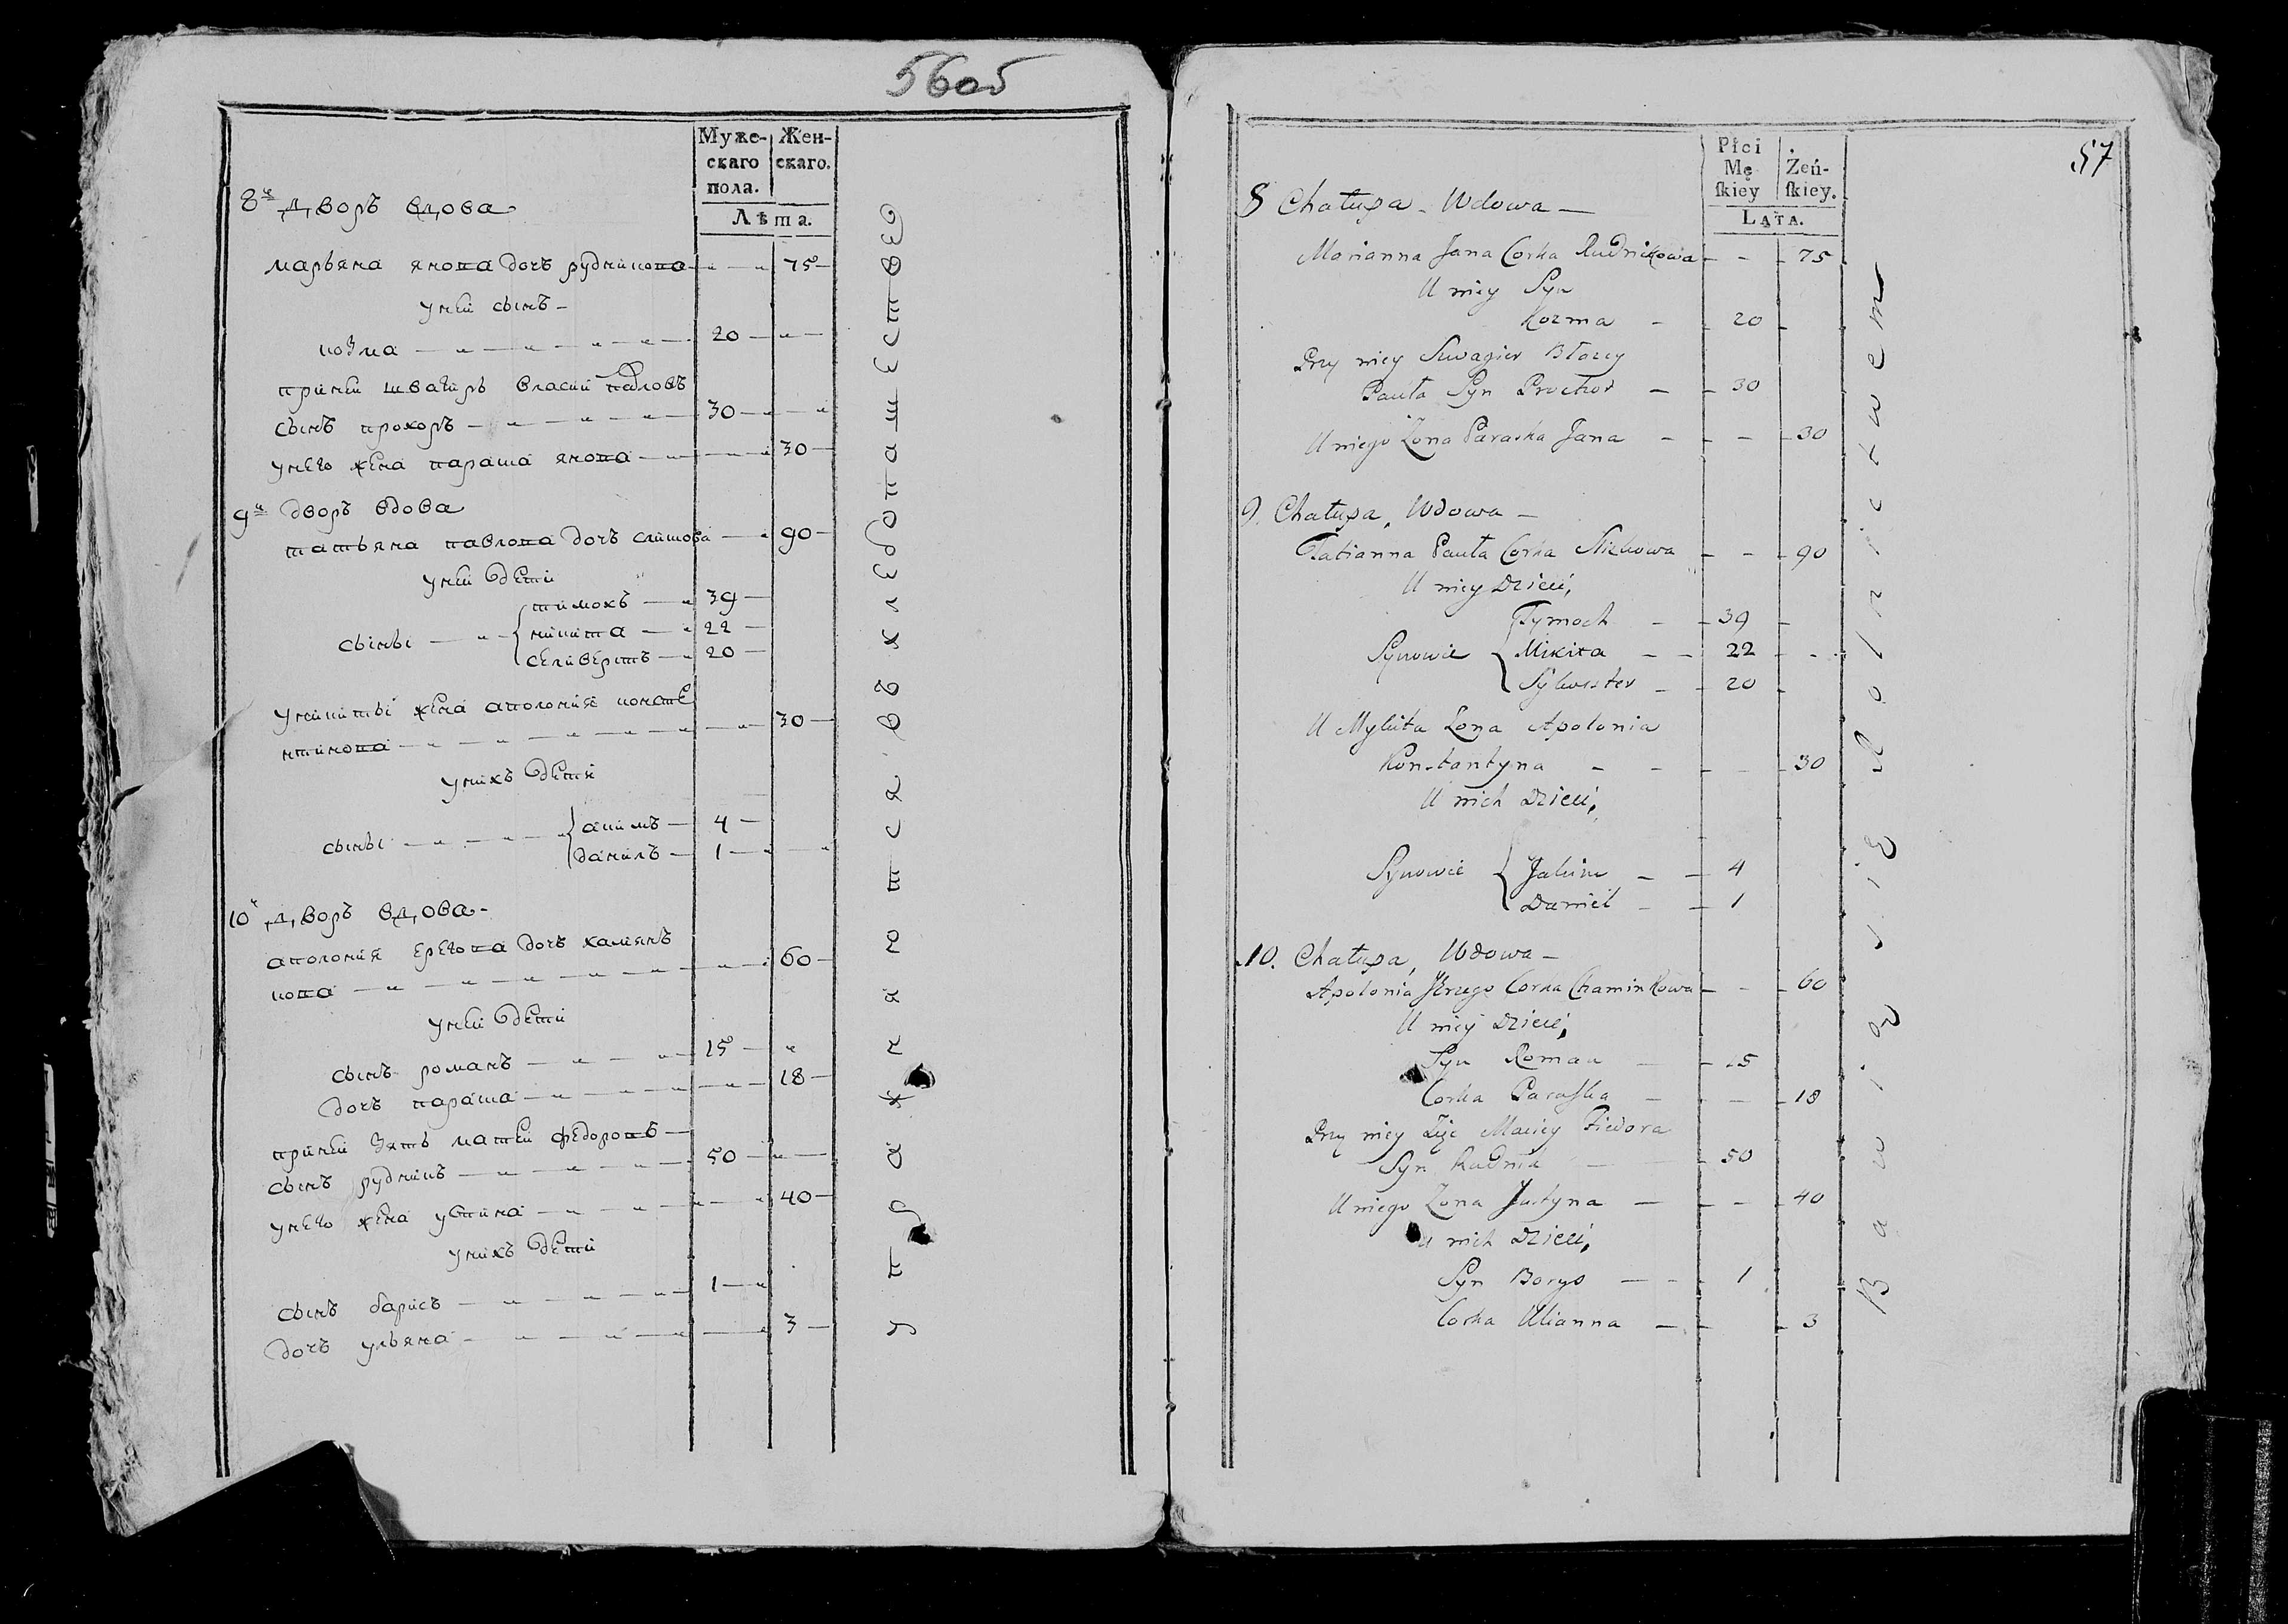 56об
Муже-
скаго
пола.
Жен-
скаго.
Лѣта.
8й дворъ вдова
марьяна якова дочь рудникова — 75
уней сынъ
козма — 20
приней швагиръ власий павловъ
сынъ прохоръ — 30
унего жена параша якова — 30
9й дворъ вдова
татьяна павлова дочь — 90
уней дети
тимохъ — 39
сыны { микита — 22
селиверстъ — 20
умикиты жена аполония конста
нтинова — 30
унихъ дети
сыны { акимъ — 4
данилъ — 1
10й дворъ вдова
аполония ерего дочь хамянъ
кова — 60
уней дети
сынъ романъ — 15
дочь параша — 18
приней зять матей федоровъ
сынъ рудникъ — 50
унего жена устина — 40
унихъ дети
сынъ барисъ — 1
дочь ульяна — 3
упражняется въ хлебопашестве
57
Płci
Mę
ſkiey
Żeń-
ſkiey.
LATA.
8 Chałupa Wdowa —
Marianna Jana Corka Rudnikowa — 75
U niey Syn
Kozma — 20
Przy niey Szwagier Błazey
Pauła Syn Prochor — 30
U niego Żona Paraska Jana — 30
9. Chałupa, Wdowa —
Tatianna Pauła Corka — 90
U niey Dzieci,
Tymoch — 39
Synowie { Mikita — 22
Sylwester — 20
U Mykita Żona Apolonia
Konstantyna — 30
U nich Dzieci,
Synowie { Jakim — 4
Daniel — 1
10. Chałupa, Wdowa —
Apolonia Jerzego Corka Chaminkowa — 60
U niey Dzieci,
Syn Roman — 15
Corka Paraſka — 18
Przy niey Zięć Maciey Fiedora
Syn Rudnik — 50
U niego Żona Justyna — 40
U nich Dzieci,
Syn Borys — 1
Corka Ulianna — 3
Bawią się Rolnictwem